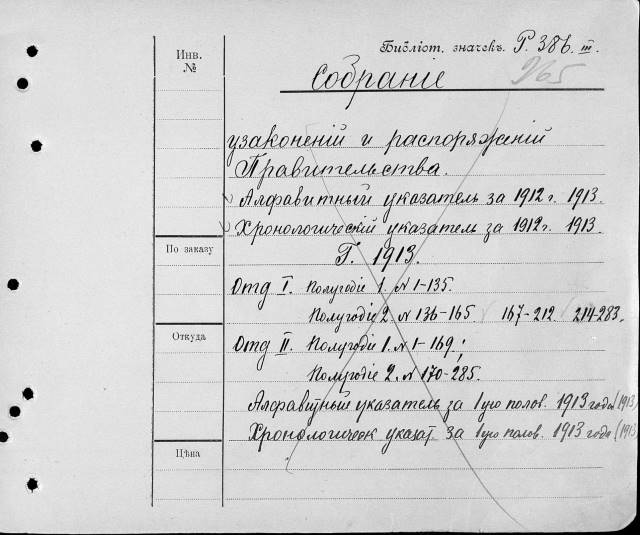 Инв. №
Библіот. значекъ Р. 386. III.
965
Собраніе
узаконеній и распоряженій
Правительства.
Алфавитный указатель за 1912 г. 1913.
Хронологическій указатель за 1912 г. 1913.
Г. 1913.
По заказу
Отд I. Полугодіе 1. N 1-135.
Полугодіе 2. N 136-165. 167-212 214-283.
Откуда
Отд II. Полугодіе 1. N 1-169;
Полугодіе 2. N 170-285.
Алфавитный указатель за 1ую полов. 1913 года (1913)
Хронологическ указат. за 1ую полов. 1913 года (1913
Цѣна